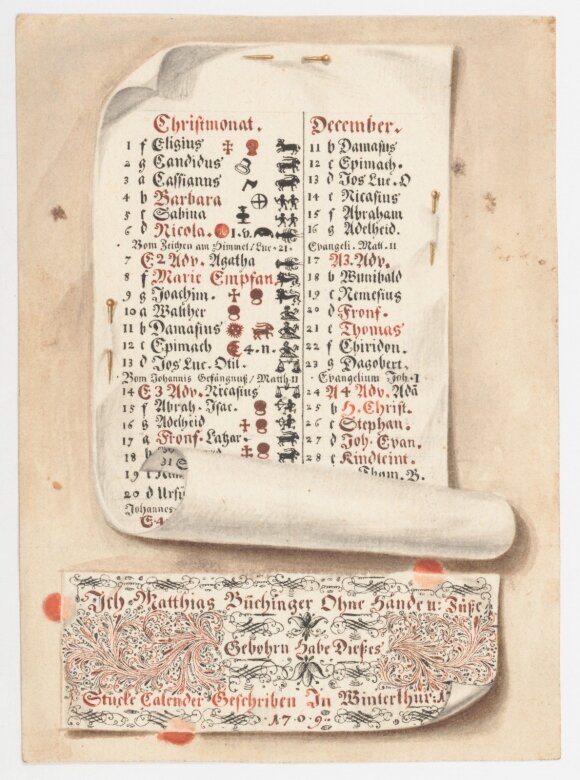 Christmonat.
1 f Eligius
2 g Candidus
3 a Cassianus
4 b Barbara
5 c Sabina
6 d Nicola. 1. v.
Vom Zeichen am Himmel/Luc. 21.
7 E 2 Adv. Agatha
8 f Marie Empfan.
9 g Joachim.
10 a Walther
11 b Damasius
12 c Epimach 4. n.
13 d Jos Luc. Otil.
Vom Johannis Gefängnuß/Matth. 11
14 E 3 Adv. Nicasius
15 f Abrah. Isac.
16 g Adelheid
17 a Fronf. Lazar.
18 b
31 E
19 c
20 d Ursi
Johannes
E 4
December.
11 b Damasius
12 c Epimach.
13 d Jos Luc. O
14 e Nicasius
15 f Abraham
16 g Adelheid.
Evangeli. Matt. 11
17 A3. Adv.
18 b Wunibald
19 c Nemesius
20 d Fronf.
21 e Thomas
22 f Chiridon.
23 g Dagobert.
Evangelium Joh. 1
24 A 4 Adv. Ada
25 b H. Christ.
26 c Stephan.
27 d Joh. Evan.
28 e Kindleint.
Tham. B.
Ich Matthias Büchinger Ohne Hände u: Füße
Gebohrn Habe Dießes
Stucke Calender Geschriben In Winterthur:
1709